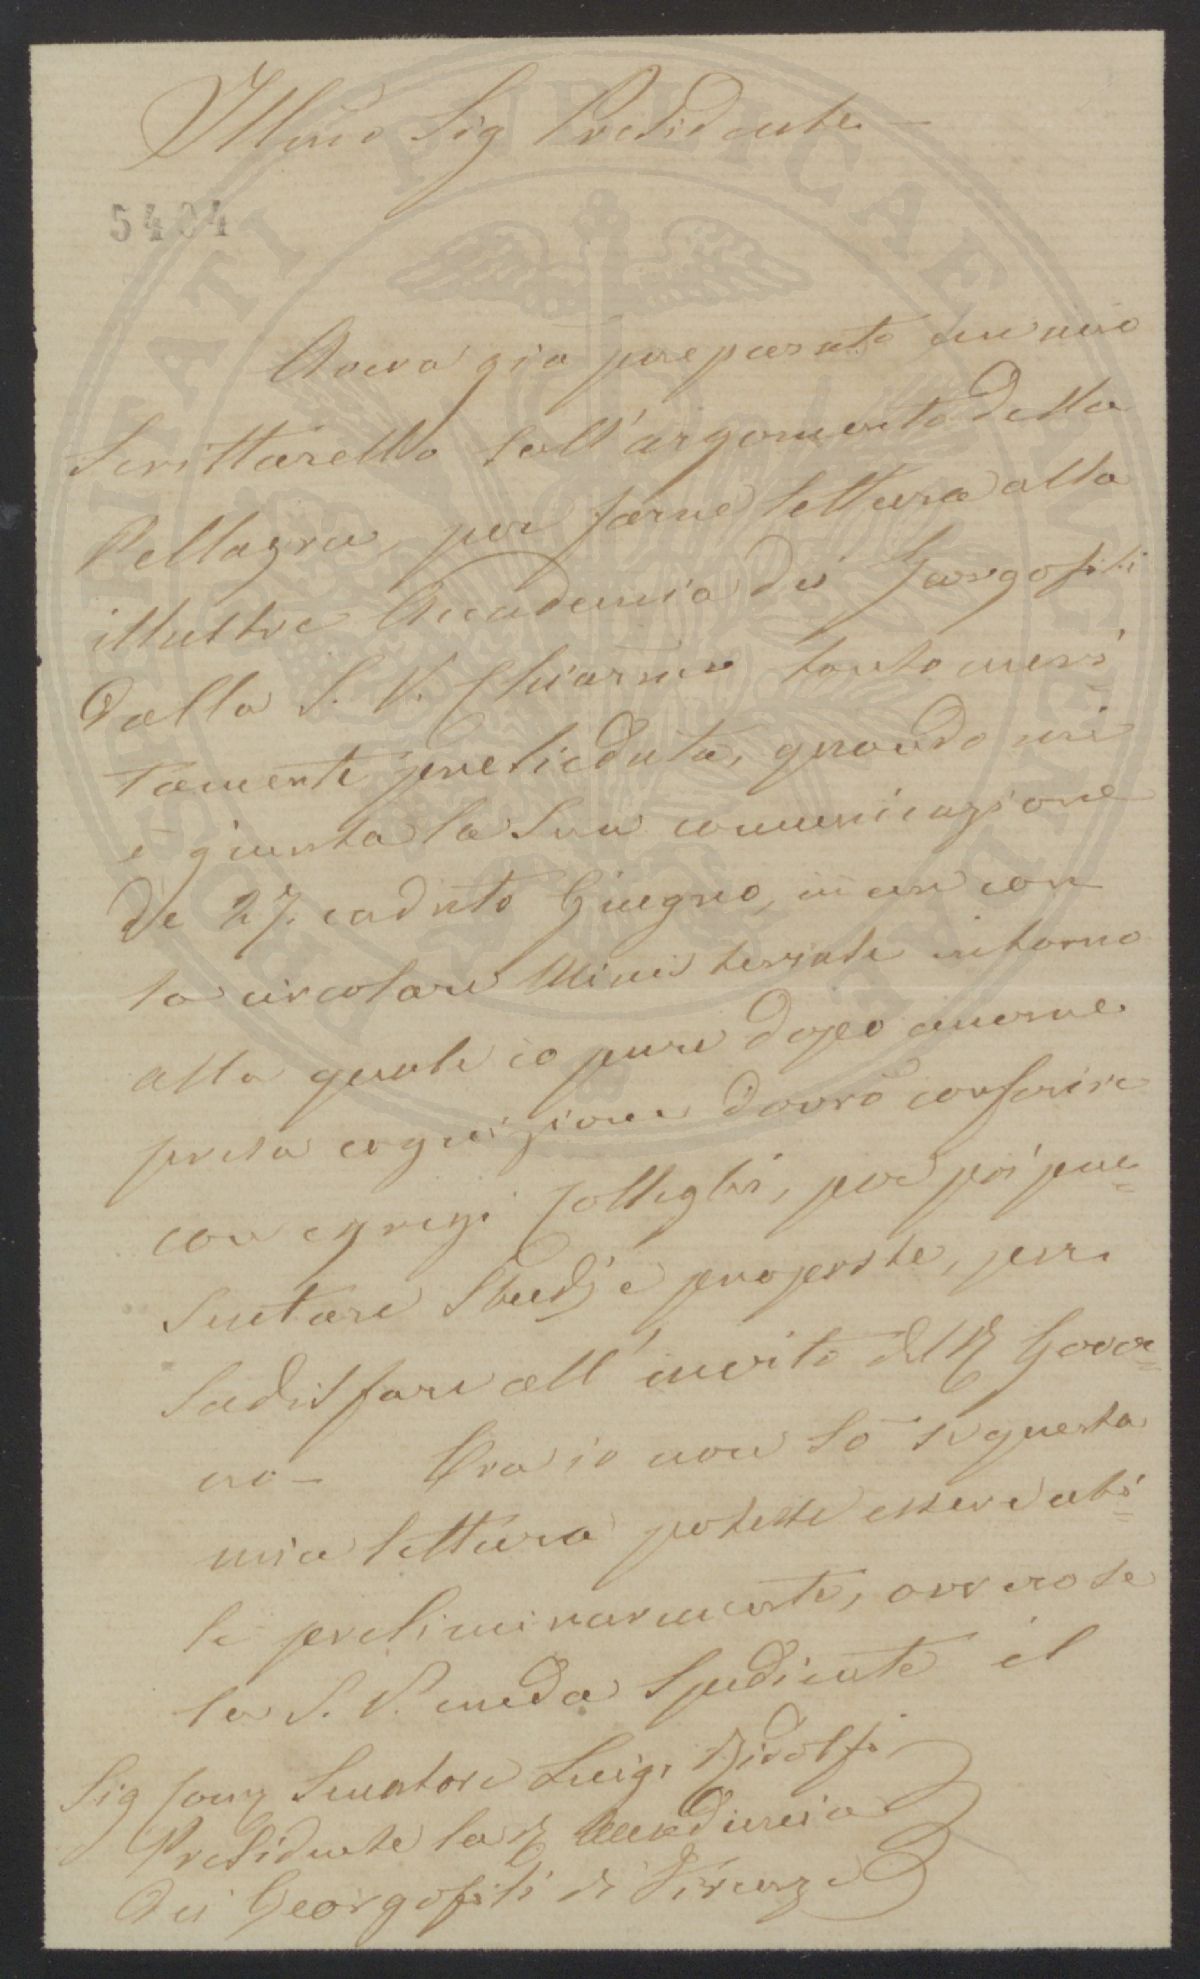 Illmo Sig Presidente —
5404
Aveva già preparato un mio
Scrittarello sull'argomento della
Pellagra, per farne lettura alla
illustre Accademia dei Georgofili
dalla S. V. Chiarma tanto meri=
tamente presieduta, quando mi
è giunta la Sua comunicazione
de 27. caduto Giugno, in un con
la circolare Ministeriale intorno
alla quale io pure dopo averne
presa cognizione dovrò conferire
con egregi Colleghi, per poi pre=
sentare Studj e proposte, per
sadisfare all'invito del R Gover=
no — Ora io non sò se questa
mia lettura potesse essere uti=
le preliminarmente, ovvero se
la S. V. creda Spediente il
Sig Senatore Luigi Ridolfi
Presidente la R Accademia
dei Georgofili di Firenze
PVBLICAE